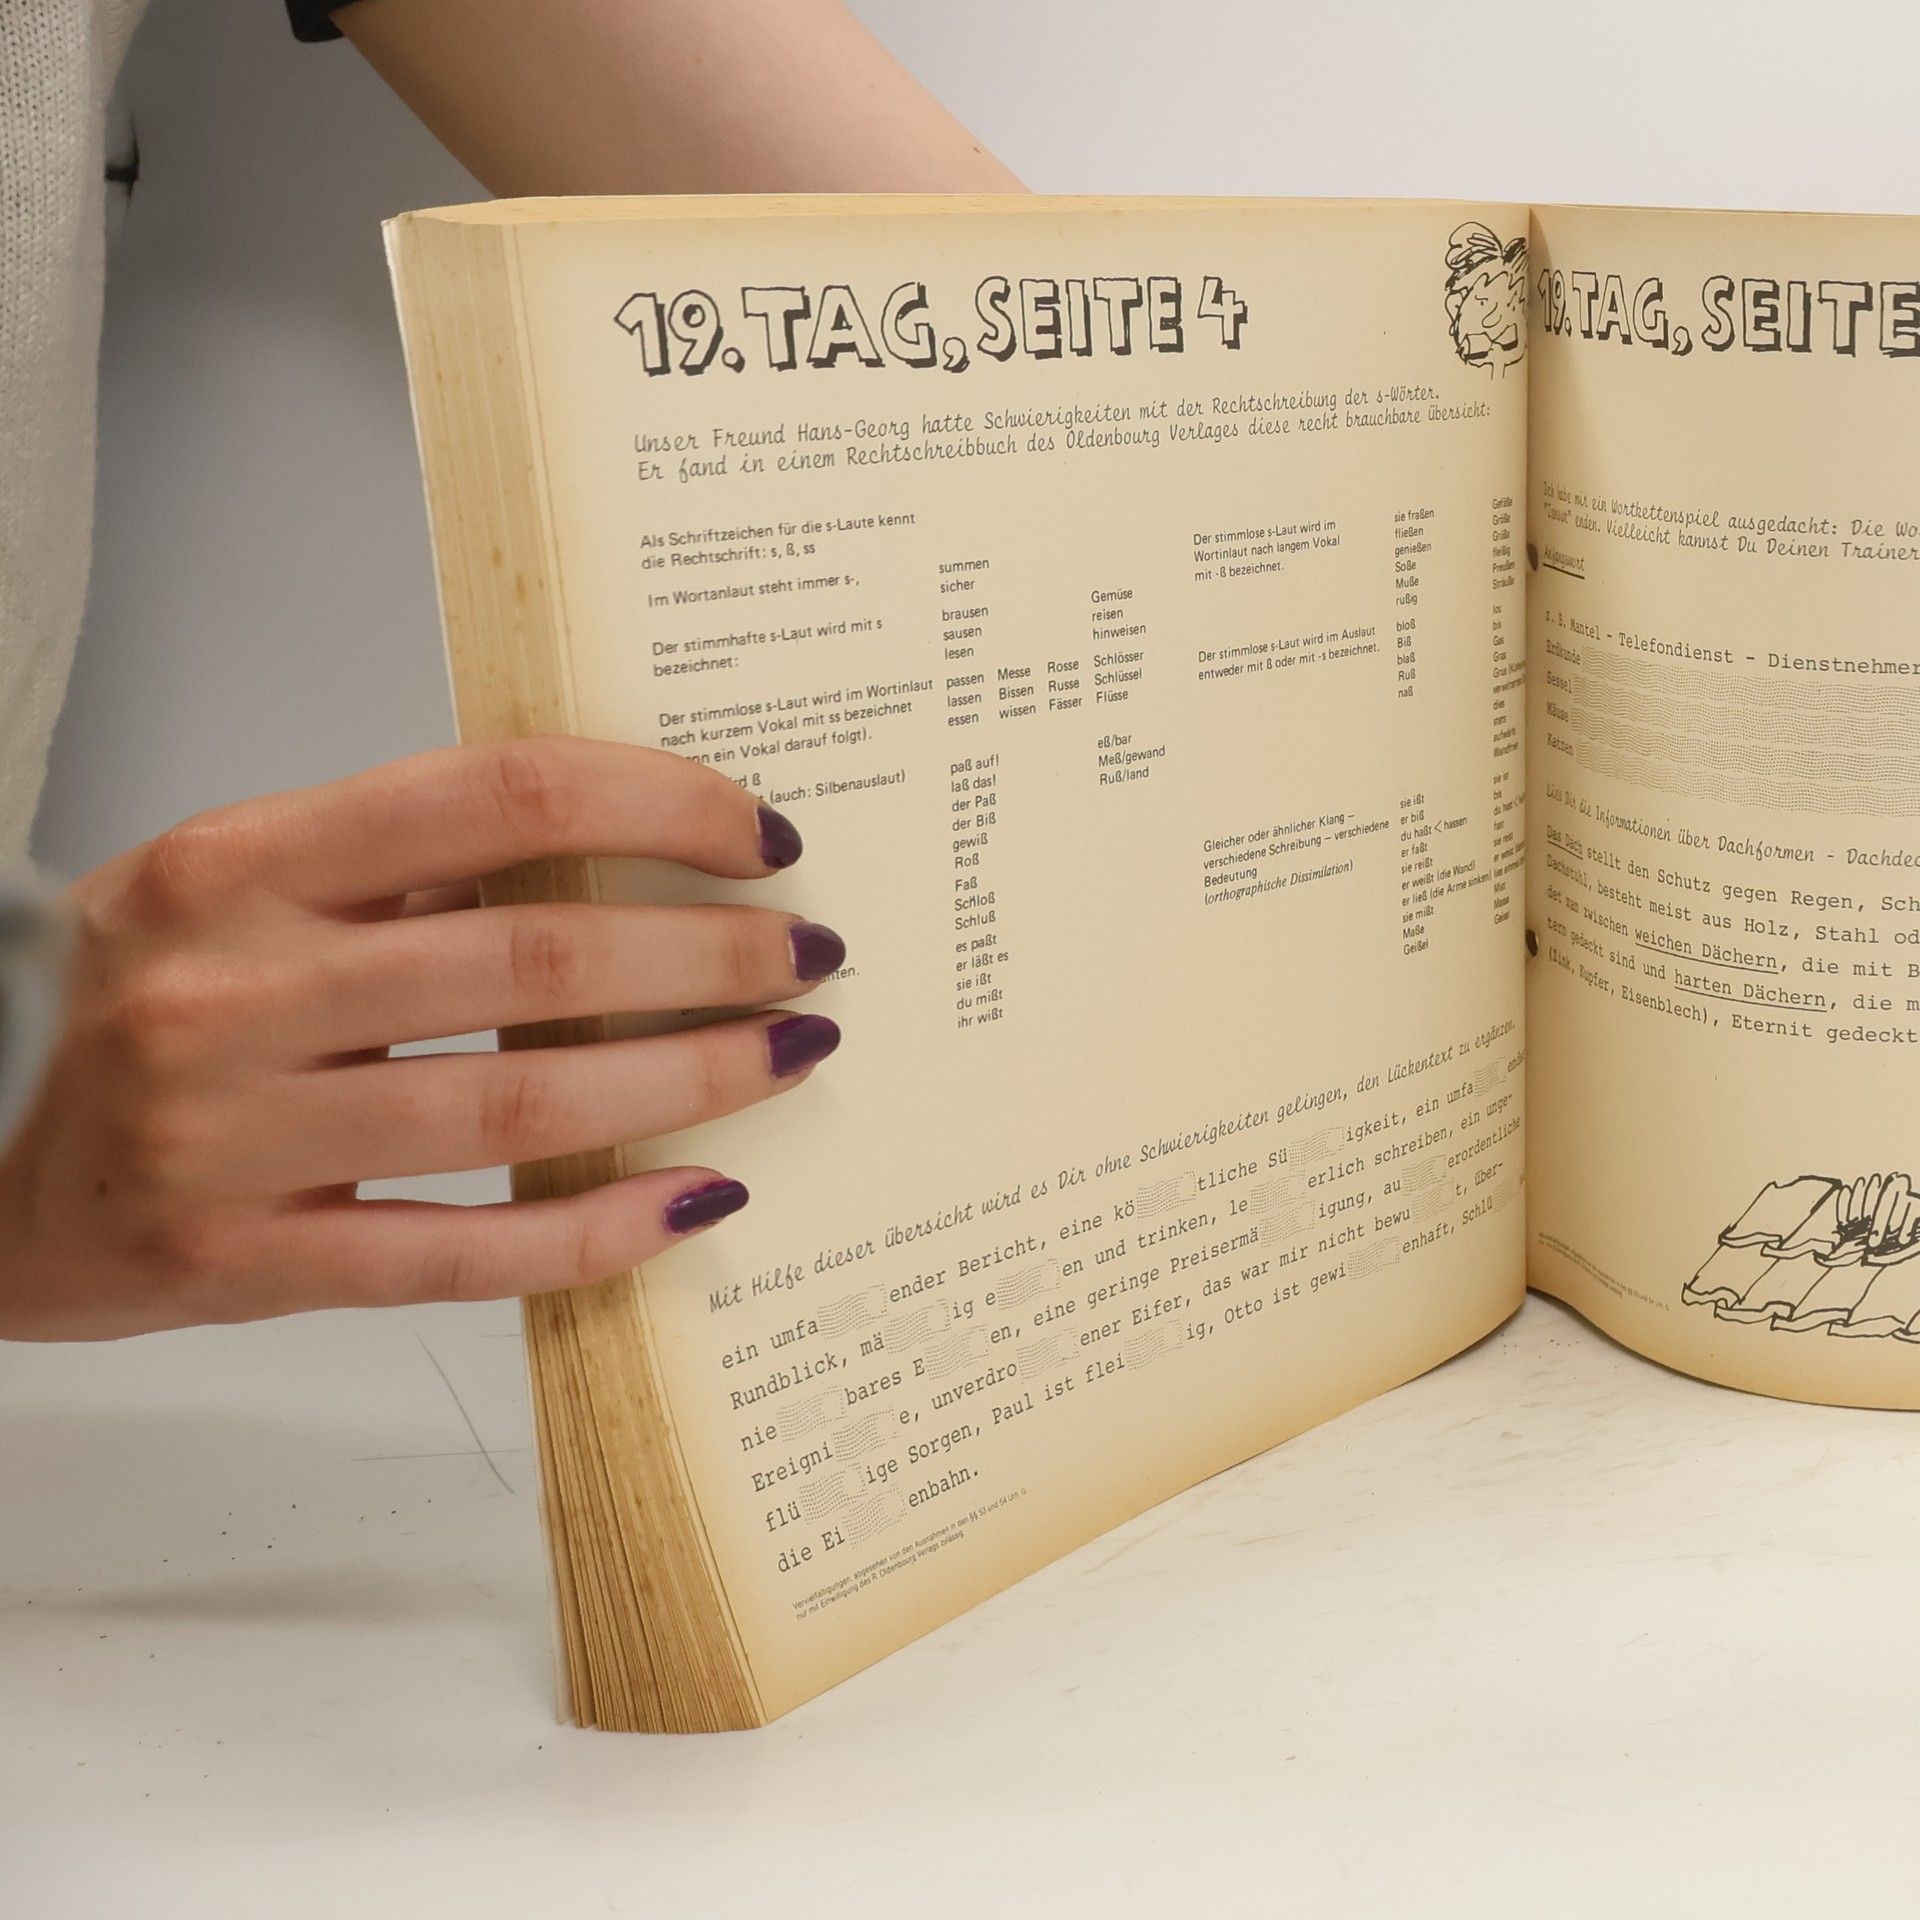 19. TAG, SEITE 4
Unser Freund Hans-Georg hatte Schwierigkeiten mit der Rechtschreibung der s-Wörter.
Er fand in einem Rechtschreibbuch des Oldenbourg Verlages diese recht brauchbare Übersicht:
Als Schriftzeichen für die s-Laute kennt
die Rechtschrift: s, ß, ss
Im Wortanlaut steht immer s-,
summen
sicher
Der stimmhafte s-Laut wird mit s
bezeichnet:
brausen
sausen
lesen
Gemüse
reisen
hinweisen
Der stimmlose s-Laut wird im Wortinlaut
nach kurzem Vokal mit ss bezeichnet
ein Vokal darauf folgt).
passen Messe Rosse Schlösser
lassen Bissen Russe Schlüssel
essen wissen Fässer Flüsse
ß
(auch: Silbenauslaut)
paß auf!
laß das!
der Paß
der Biß
gewiß
Roß
Faß
Schloß
Schluß
es paßt
er läßt es
sie ißt
du mißt
ihr wißt
eß/bar
Meß/gewand
Ruß/land
Der stimmlose s-Laut wird im
Wortinlaut nach langem Vokal
mit -ß bezeichnet.
sie fraßen
fließen
genießen
Soße
Muße
rußig
Gefäße
Größe
Grüße
fleißig
Preußen
Sträuße
Der stimmlose s-Laut wird im Auslaut
entweder mit ß oder mit -s bezeichnet.
bloß
Biß
blaß
Ruß
naß
los
bis
Gas
Gras
dies
stets
aufwärts
Gleicher oder ähnlicher Klang –
verschiedene Schreibung – verschiedene
Bedeutung
(orthographische Dissimilation)
sie ißt
er biß
du haßt < hassen
er faßt
sie reißt
er weißt (die Wand)
er ließ (die Arme sinken)
sie mißt
Maße
Geißel
sie ist
bis
du hast
fast
sie reist
Mist
Geisel
Mit Hilfe dieser Übersicht wird es Dir ohne Schwierigkeiten gelingen, den Lückentext zu ergänzen.
ein umfa ender Bericht, eine kö tliche Sü igkeit, ein umfa
Rundblick, mä ig e en und trinken, le erlich schreiben, ein unge-
nie bares E en, eine geringe Preisermä igung, au erordentliche
Ereigni e, unverdro ener Eifer, das war mir nicht bewu t, über-
flü ige Sorgen, Paul ist flei ig, Otto ist gewi enhaft, Schlü
die Ei enbahn.
Vervielfältigungen, abgesehen von den Ausnahmen in den §§ 53 und 54 Urh. G
nur mit Einwilligung des R. Oldenbourg Verlags zulässig
19. TAG, SEITE
Ich habe mir ein Wortkettenspiel ausgedacht: Die
enden. Vielleicht kannst Du Deinen Trainer
Anfangswort
z. B. Mantel - Telefondienst - Dienstnehmer
Erdkunde
Sessel
Mäuse
Katzen
Lies Dir die Informationen über Dachformen -
Das Dach stellt den Schutz gegen Regen,
Dachstuhl, besteht meist aus Holz, Stahl
det man zwischen weichen Dächern, die mit
tern gedeckt sind und harten Dächern, die
(Zink, Kupfer, Eisenblech), Eternit gedeckt